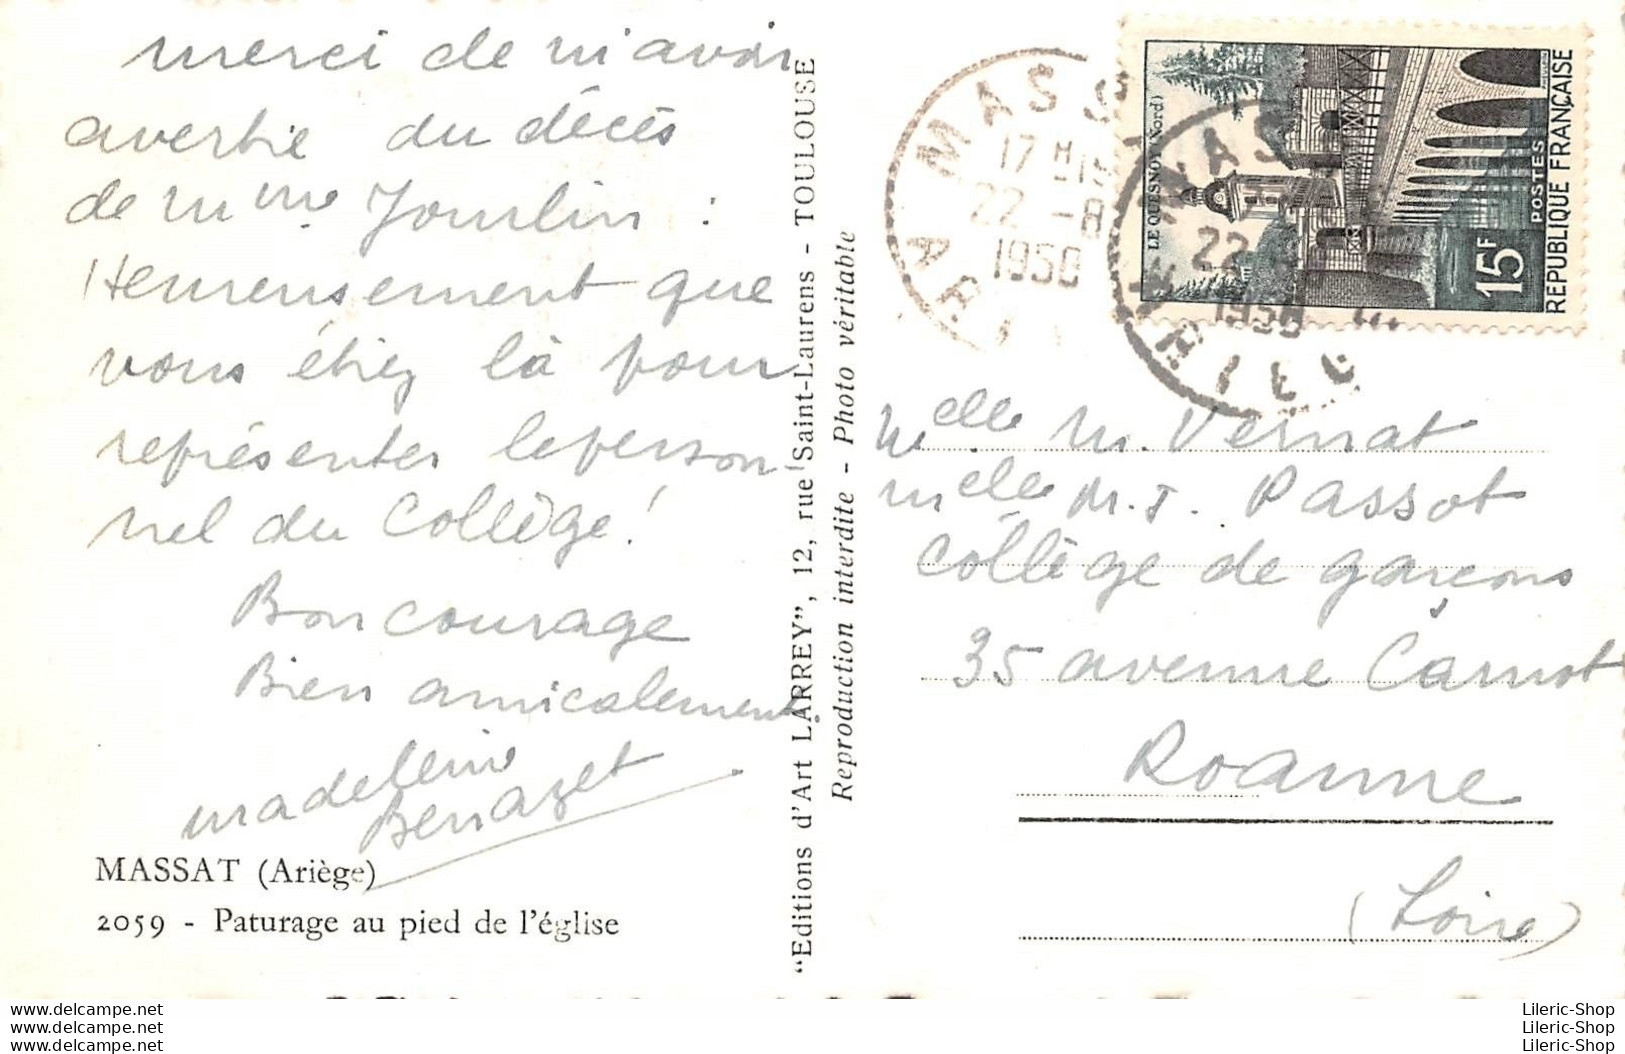 merci de m'avoir
avertie du décès
de Mme Joulin :
Heureusement que
vous étiez là pour
représenter le person-
nel du Collège !
Bon courage
Bien amicalement.
Madeleine
Benazet
MASSAT (Ariège)
2059 - Paturage au pied de l'église
"Editions d'Art LARREY", 12, rue Saint-Laurens - TOULOUSE
Reproduction interdite - Photo véritable
MASS
17 H
22 -8
1950
AR
MAS
22
1950
RIEG
LE QUESNOY (Nord)
15F
POSTES
REPUBLIQUE FRANÇAISE
Melle M. Vernat
Melle M.J. Passot
Collège de garçons
35 avenue Carnot
Roanne
(Loire)
Lileric-Shop
Lileric-Shop
Lileric-Shop
www.delcampe.net
www.delcampe.net
www.delcampe.net